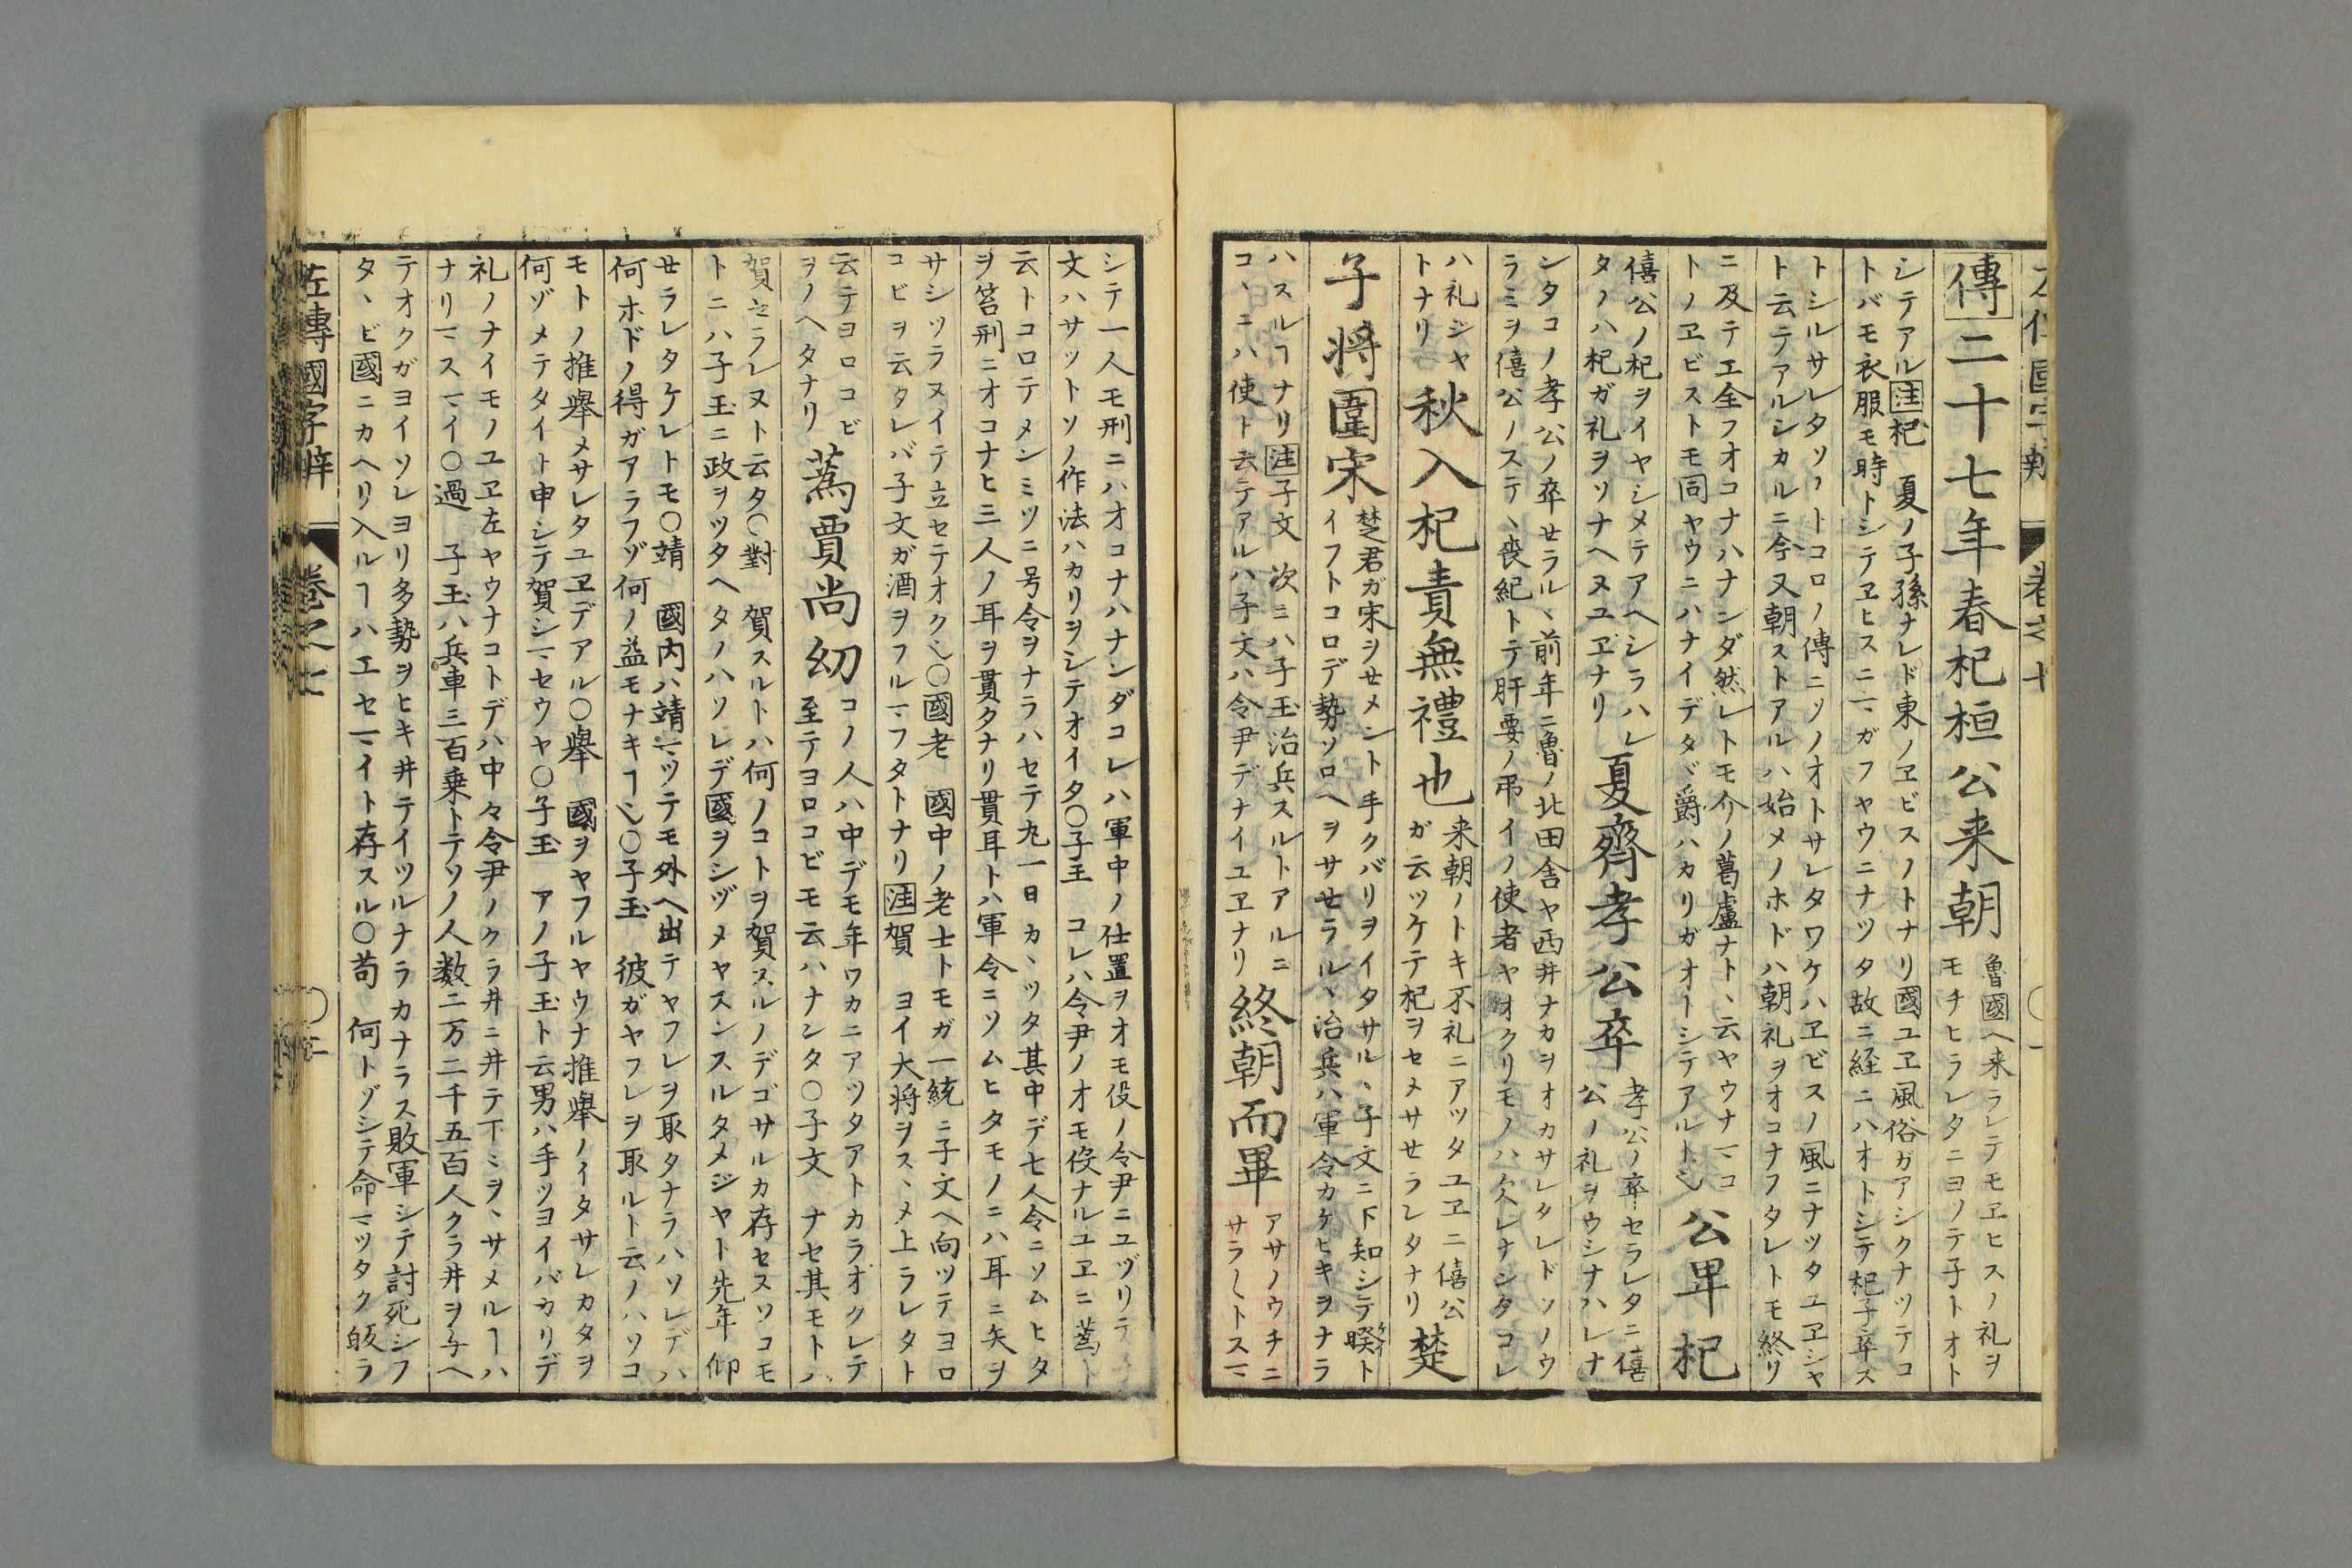 傳二十七年春杞桓公来朝
魯國ヘ来ラレテモヱヒスノ礼ヲ
モチヒラレタニヨツテ子トオト
シテアル注杞 夏ノ子孫ナレド東ノヱビスノトナリ國ユヱ風俗ガアシクナツテコ
トバモ衣服モ時トシテヱヒスニマガフヤウニナツタ故ニ経ニハオトシテ杞子卒ス
トシルサレタソノトコロノ傳ニソノオトサレタワケハヱビスノ風ニナツタユヱシヤ
ト云テアルシカルニ今又朝ストアルハ始メノホドハ朝礼ヲオコナフタレトモ終リ
ニ及テヱ全フオコナハナンダ然レトモ介ノ葛盧ナト丶云ヤウナマコ
トノヱビストモ同ヤウニハナイデタヾ爵ハカリガオトシテアルト也
公卑杞
僖公ノ杞ヲイヤシメテアヘシラハレ
タノハ杞ガ礼ヲソナヘヌユヱナリ
夏齊孝公卒
孝公ノ卒セラレタニ僖
公ノ礼ヲウシナハレナ
ンタコノ孝公ノ卒セラル丶前年ニ魯ノ北田舎ヤ西井ナカヲオカサレタレドソノウ
ラミヲ僖公ノステ丶喪紀トテ肝要ノ弔イノ使者ヤオクリモノハ欠レナンタコレ
ハ礼ジヤ
トナリ
秋入杞責無禮也
来朝ノトキ不礼ニアツタユヱニ僖公
ガ云ツケテ杞ヲセメサセラレタナリ
楚
子将圍宋
楚君ガ宋ヲセメント手クバリヲイタサル丶子文ニ下知シテ睽ト
イフトコロデ勢ソロヘヲサセラル丶治兵ハ軍令カケヒキヲナラ
ハスルヿナリ注子文 次ニハ子玉治兵スルトアルニ
コ丶ニハ使ト云テアルハ子文ハ令尹デナイユヱナリ
終朝而畢
アサノウチニ
サラ〱トスマ
シテ一人モ刑ニハオコナハナンダコレハ軍中ノ仕置ヲオモ役ノ令尹ニユヅリテ
文ハサツトソノ作法ハカリヲシテオイタ〇子玉 コレハ令尹ノオモ役ナルユヱニ蒍ト
云トコロテメンミツニ号令ヲナラハセテ丸一日カ丶ツタ其中デ七人令ニソムヒタ
ヲ笞刑ニオコナヒ三人ノ耳ヲ貫タナリ貫耳トハ軍令ニソムヒタモノニハ耳ニ矢ヲ
サシツラヌイテ立セテオク也〇國老 國中ノ老士トモガ一統ニ子文ヘ向ツテヨロ
コビヲ云タレバ子文ガ酒ヲフルマフタトナリ注賀 ヨイ大将ヲス丶メ上ラレタト
云テヨロコビ
ヲノヘタナリ
蒍賈尚幼
コノ人ハ中デモ年ワカニアツタアトカラオクレテ
至テヨロコビモ云ハナンタ〇子文 ナセ其モトハ
賀セラレヌト云タ〇對 賀スルトハ何ノコトヲ賀スルノデゴサルカ存セヌソコモ
トニハ子玉ニ政ヲツタヘタノハソレデ國ヲシヅメヤスンスルタメジヤト先年仰
せラレタケレトモ〇靖 國内ハ靖マツテモ外ヘ出テヤフレヲ取タナラハソレデハ
何ホドノ得ガアラフゾ何ノ益モナキヿ也〇子玉 彼ガヤフレヲ取ルト云ノハソコ
モトノ推舉メサレタユヱデアル〇舉 國ヲヤフルヤウナ推舉ノイタサレカタヲ
何ゾメテタイト申シテ賀シマセウヤ〇子玉 アノ子玉ト云男ハ手ツヨイバカリデ
礼ノナイモノユヱ左ヤウナコトデハ中々令尹ノクラ井ニ井テ下ミヲ丶サメルヿハ
ナリマスマイ〇過 子玉ハ兵車三百乗トテソノ人数二万二千五百人クラ井ヲ与ヘ
テオクガヨイソレヨリ多勢ヲヒキ井テイツルナラカナラス敗軍シテ討死シフ
タ丶ビ國ニカヘリ入ルヿハエセマイト存スル〇苟 何トゾシテ命マツタク皈ラ
左傳國字辯
巻之七